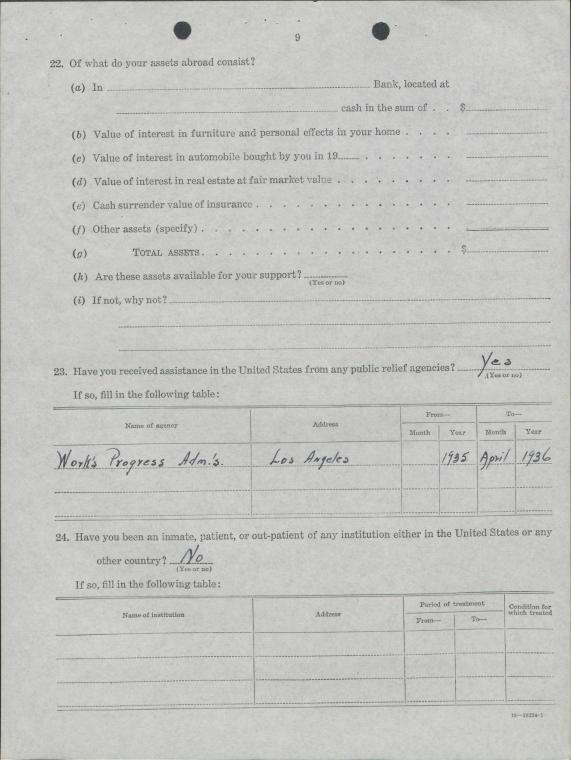 9
22. Of what do your assets abroad consist?
(a) In Bank, located at
cash in the sum of . . $
(b) Value of interest in furniture and personal effects in your home . . . .
(c) Value of interest in automobile bought by you in 19 . . . . . . .
(d) Value of interest in real estate at fair market value . . . . . . . . .
(e) Cash surrender value of insurance . . . . . . . . . . . . . .
(f) Other assets (specify) . . . . . . . . . . . . . . . . . .
(g) TOTAL ASSETS. . . . . . . . . . . . . . . . . . $
(h) Are these assets available for your support?
(Yes or no)
(i) If not, why not?
23. Have you received assistance in the United States from any public relief agencies? Yes
(Yes or no)
If so, fill in the following table:
Name of agency Address From— To—
Month Year Month Year
Work's Progress Adm.'s. Los Angeles 1935 April 1936
24. Have you been an inmate, patient, or out-patient of any institution either in the United States or any
other country? No
(Yes or no)
If so, fill in the following table:
Name of institution Address Period of treatment Condition for which treated
From— To—